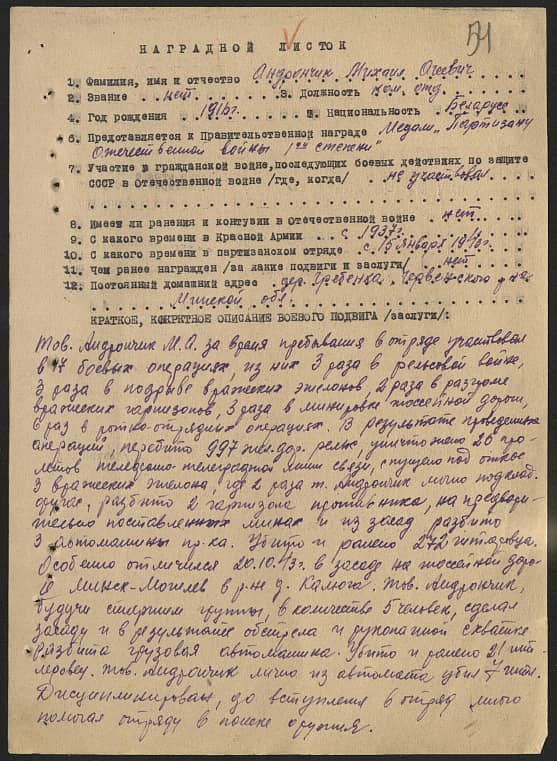 51
НАГРАДНОЙ ЛИСТОК
1. Фамилия, имя и отчество Андрончик Михаил Агеевич
2. Звание нет 3. Должность ком. отд.
4. Год рождения 1916г. 5. Национальность Беларусс
6. Представляется к Правительственной награде Медали "Партизану
Отечественной войны 1ой степени"
7. Участие в гражданской войне, последующих боевых действиях по защите
СССР в Отечественной войне /где, когда/ не участвовал
8. Имеет ли ранения и контузии в Отечественной войне нет
9. С какого времени в Красной Армии с 1937г.
10. С какого времени в партизанском отряде с 15 января
11. Чем ранее награжден /за какие подвиги и заслуги/ нет
12. Постоянный домашний адрес дер. Гребенка, Червенского р-на
Минской обл.
КРАТКОЕ, КОНКРЕТНОЕ ОПИСАНИЕ БОЕВОГО ПОДВИГА /заслуги/:
Тов. Андрончик М.А. за время пребывания в отряде участвовал
в 17 боевых операциях, из них 3 раза в рельсовой войне,
3 раза в подрыве вражеских эшелонов, 2 раза в разгроме
вражеских гарнизонов, 3 раза в минировке шоссейной дороги,
6 раз в ротно-отрядных операциях. В результате проведенных
операций, перебито 997 жел. дор. рельс, уничтожено 26 про-
летов телефонно-телеграфной линии связи, спущено под откос
3 вражеских эшелона, где 2 раза т. Андрончик лично подклад.
разбито 2 гарнизона противника, на предвари-
тельно поставленных минах и из засад разбито
3 автомашины пр-ка. Убито и ранено 272 гитлеровца.
Особенно отличился 20.10.43г. в засаде на шоссейной доро-
ге Минск-Могилев в р-не д. Калюга. Тов. Андрончик,
будучи старшим группы, в количестве 5 человек, сделал
засаду и в результате обстрела и рукопашной схватке
разбита грузовая автомашина. Убито и ранено 21 гит-
леровец. Тов. Андрончик лично из автомата убил 7 гитл.
Дисциплинирован, до вступления в отряд много
помогал отряду в поиске оружия.